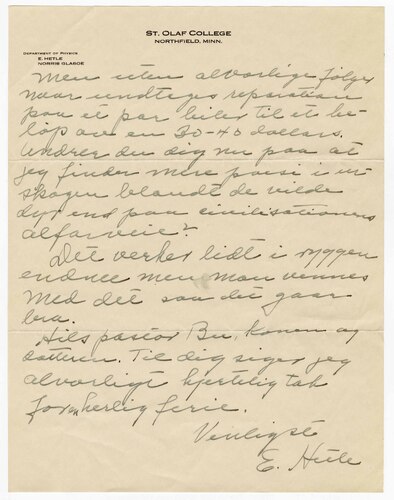 ST. OLAF COLLEGE
NORTHFIELD, MINN.
DEPARTMENT OF PHYSICS
E. HETLE
NORRIS GLASOE
men uten alvorlige følger
naar undtages reparation
paa et par biler til et be-
løp av en 30-40 dollars.
Undrer du dig nu paa at
jeg finder mere poesi i ur-
skogen blandt de vilde
dyr end paa civilisationens
alfarveie?
Det verker lidt i ryggen
endnee men man vennes
med det saa det gaar
bra.
Hils pastor Bu, konen og
datteren. Til dig siger jeg
alvorligt hjertelig tak
for en herlig ferie.
Venligst
E. Hetle